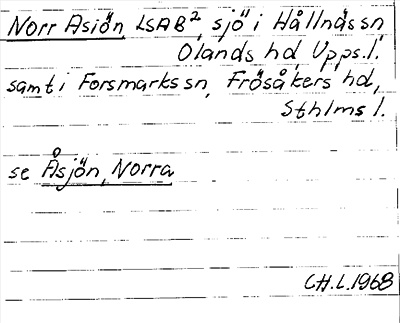 Norr Asiön LSAB², sjö i Hållnäs sn,
Olands hd, Upps.l.
samt i Forsmarks sn, Frösåkers hd,
Sthlms l.
se Åsjön, Norra
CH.L.1968